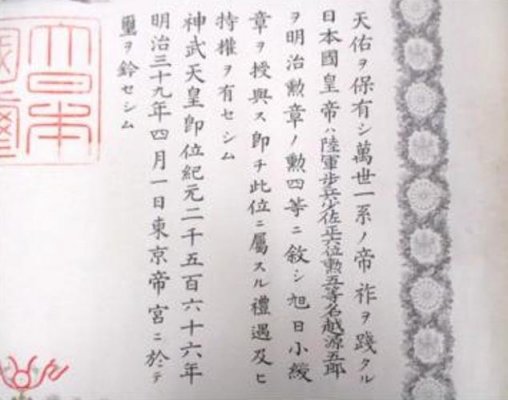 天佑ヲ保有シ萬世一系ノ帝祚ヲ踐タル
日本國皇帝ハ陸軍步兵少佐正六位勲五等名越源五郎
ヲ明治勲章ノ勲四等ニ敘シ旭日小綬
章ヲ授與ス即チ此位ニ屬スル禮遇及ヒ
特權ヲ有セシム
神武天皇即位紀元二千五百六十六年
明治三十九年四月一日東京帝宮ニ於テ
璽ヲ鈐セシム
大日本
國璽